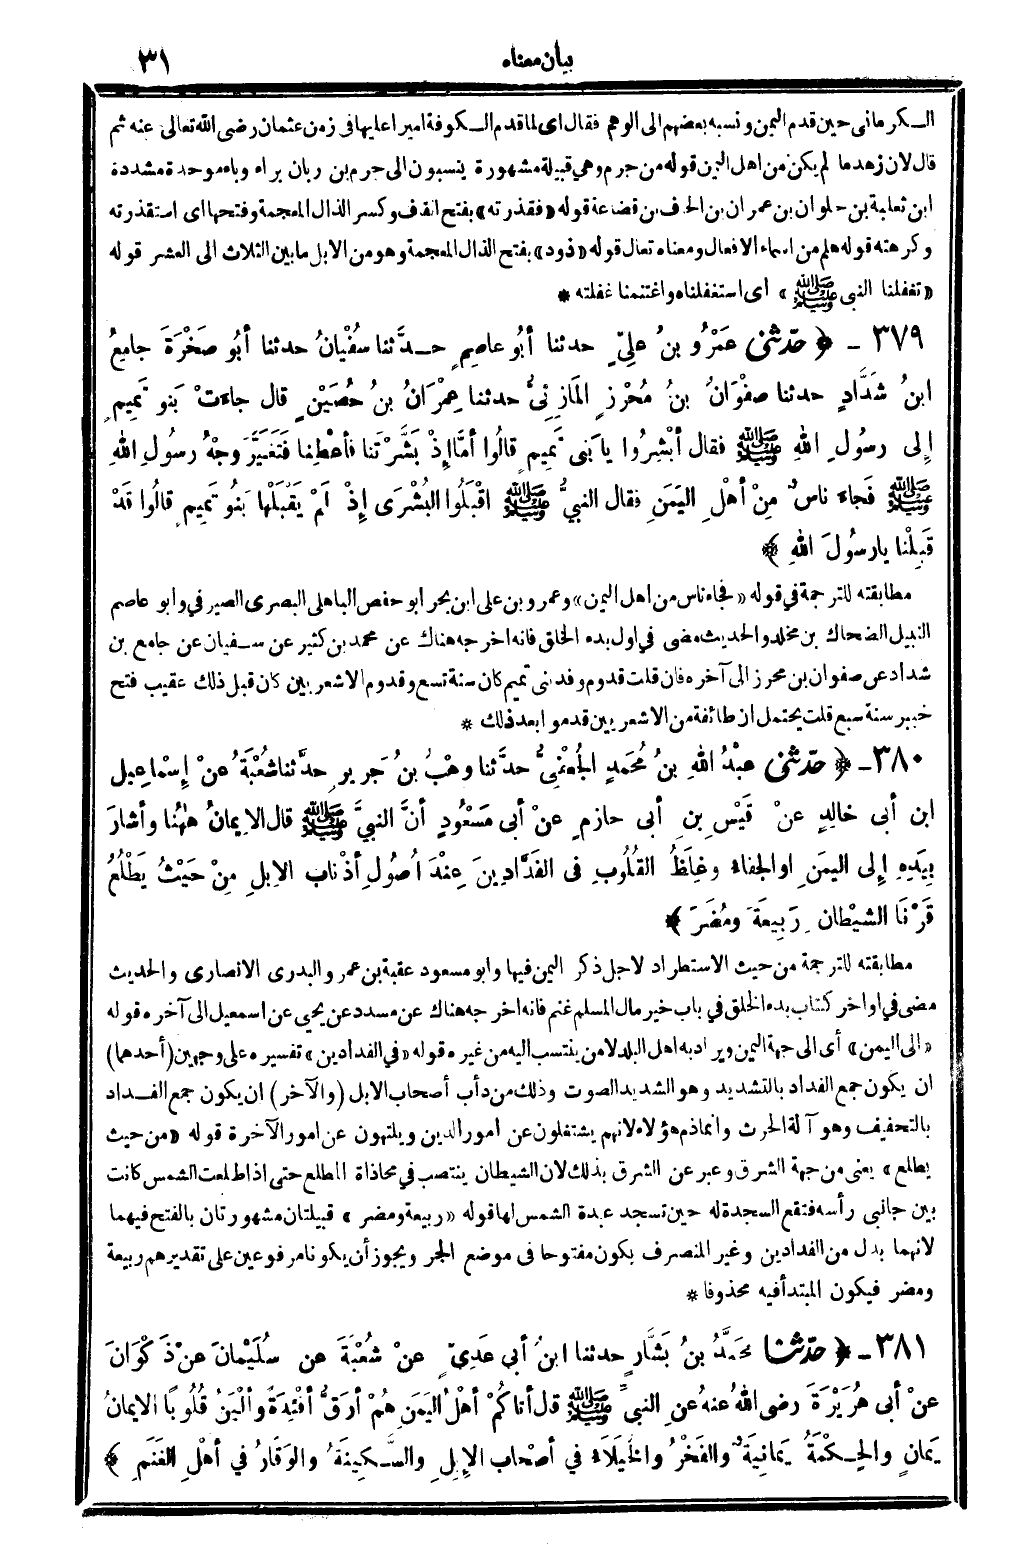 بيان معناه ٣١
الكرماني حين قدم اليمن ونسبه بعضهم الى الوهم فقال اى لما قدم الكوفة اميرا عليها فى زمن عثمان رضى الله تعالى عنه ثم
قال لان زهدما لم يكن من اهل اليمن قوله من جرم وهي قبيلة مشهورة ينسبون الى جرم بن ربان براء وباء موحدة مشددة
ابن ثعلبة بن حلوان بن عمران بن الحاف بن قضاعة قوله «فقذرته» بفتح القاف وكسر الذال المعجمة وفتحها اى استقذرته
وكرهته قوله هلم من اسماء الافعال ومعناه تعال قوله «ذود» بفتح الذال المعجمة وهو من الابل ما بين الثلاث الى العشر قوله
«تغفلنا النبي ﷺ» اى استغفلناه واغتنمنا غفلته *
٣٧٩ ـ ﴿ حدّثني عَمْرُو بنُ عليٍّ حدثنا أبُو عاصِمٍ حــدَّثنا سُفْيانُ حدثنا أبُو صَخْرَةَ جامِعُ
ابنُ شَدَّادٍ حدثنا صفْوَانُ بنُ مُحْرِزٍ المَازِنِىُّ حدثنا عِمْرَانُ بنُ حُصَيْنٍ قال جاءَتْ بَنو تَمِيمٍ
إلى رسُولِ اللهِ ﷺ فقال أبْشِرُوا يا بَنى تَمِيمٍ قالُوا أمَّا إذْ بَشَّرْتَنا فأعْطِنا فَتَغَيَّرَ وجْهُ رسُولِ اللهِ
ﷺ فَجاءَ ناسٌ مِنْ أهْلِ اليَمَنِ فقال النبيُّ ﷺ اقْبَلُوا البُشْرَى إذْ لَمْ يَقْبَلْها بَنُو تَمِيمٍ قالُوا قَدْ
قَبِلْنا يا رسُولَ اللهِ ﴾
مطابقته للترجمة في قوله «فجاء ناس من اهل اليمن» وعمرو بن على ابن بحر ابو حفص الباهلى البصرى الصيرفي وابو عاصم
النبيل الضحاك بن مخلد والحديث مضى في اول بدء الخلق فانه اخرجه هناك عن محمد بن كثير عن سفيان عن جامع بن
شداد عن صفوان بن محرز الى آخره فان قلت قدوم وفد بنى تميم كان سنة تسع وقدوم الاشعريين كان قبل ذلك عقيب فتح
خيبر سنة سبع قلت يحتمل ان طائفة من الاشعريين قدموا بعد ذلك *
٣٨٠ ـ ﴿ حدّثني عبْدُ اللهِ بنُ مُحَمدٍ الجُعْفِىُّ حدَّثنا وهْبُ بنُ جَرِيرٍ حدَّثنا شُعْبَةُ عنْ إسْماعِيلَ
ابن أبى خالِدٍ عنْ قَيْسِ بنِ أبى حازمٍ عنْ أبى مَسْعُودٍ أنَّ النبيَّ ﷺ قال الايمانُ ههُنا وأشارَ
بِيَدِهِ إلى اليمَنِ والجفاءُ وغِلَظُ القُلُوبِ فى الفَدَّادِينَ عِنْدَ أصُولِ أذْنابِ الابِلِ مِنْ حَيْثُ يَطْلُعُ
قَرْنَا الشيْطانِ رَبِيعَةَ ومُضَرَ ﴾
مطابقته للترجمة من حيث الاستطراد لاجل ذكر اليمن فيها وابو مسعود عقبة بن عمرو البدرى الانصارى والحديث
مضى في اواخر كتاب بدء الخلق في باب خير مال المسلم غنم فانه اخرجه هناك عن مسدد عن يحيى عن اسمعيل الى آخره قوله
«الى اليمن» أى الى جهة اليمن ويراد به اهل البلد لا من ينتسب اليه من غيره قوله «في الفدادين» تفسيره على وجهين (أحدهما)
ان يكون جمع الفداد بالتشديد وهو الشديد الصوت وذلك من دأب أصحاب الابل (والآخر) ان يكون جمع الفــداد
بالتخفيف وهو آلة الحرث وانما ذم هؤلاء لانهم يشتغلون عن امور الدين ويلتهون عن امور الآخرة قوله «من حيث
يطلع» يعنى من جهة الشرق وعبر عن الشرق بذلك لان الشيطان ينتصب في محاذاة المطلع حتى اذا طلعت الشمس كانت
بين جانبى رأسه فتقع السجدة له حين تسجد عبدة الشمس لها قوله «ربيعة ومضر» قبيلتان مشهورتان بالفتح فيهما
لانهما بدل من الفدادين وغير المنصرف يكون مفتوحا فى موضع الجر ويجوز أن يكونا مرفوعين على تقديرهم ربيعة
ومضر فيكون المبتدأ فيه محذوفا *
٣٨١ ـ ﴿ حدّثنا محَمدُ بنُ بَشَّارٍ حدثنا ابنُ أبي عَدِىّ عنْ شُعْبَةَ عن سُلَيْمانَ عنْ ذَكْوَانَ
عنْ أبى هُرَيْرَةَ رضى اللهُ عنهُ عنِ النبيِّ ﷺ قال أتاكُمْ أهْلُ اليَمَنِ هُمْ أرَقُّ أفْئِدَةً وألْيَنُ قُلُوبًا الايمانُ
يَمانٍ والحِكْمَةُ يَمانِيَةٌ والفَخْرُ والخُيَلاَءُ في أصْحابِ الإبِلِ والسَّكِينَةُ والوَقَارُ في أهْلِ الغَنَمِ ﴾